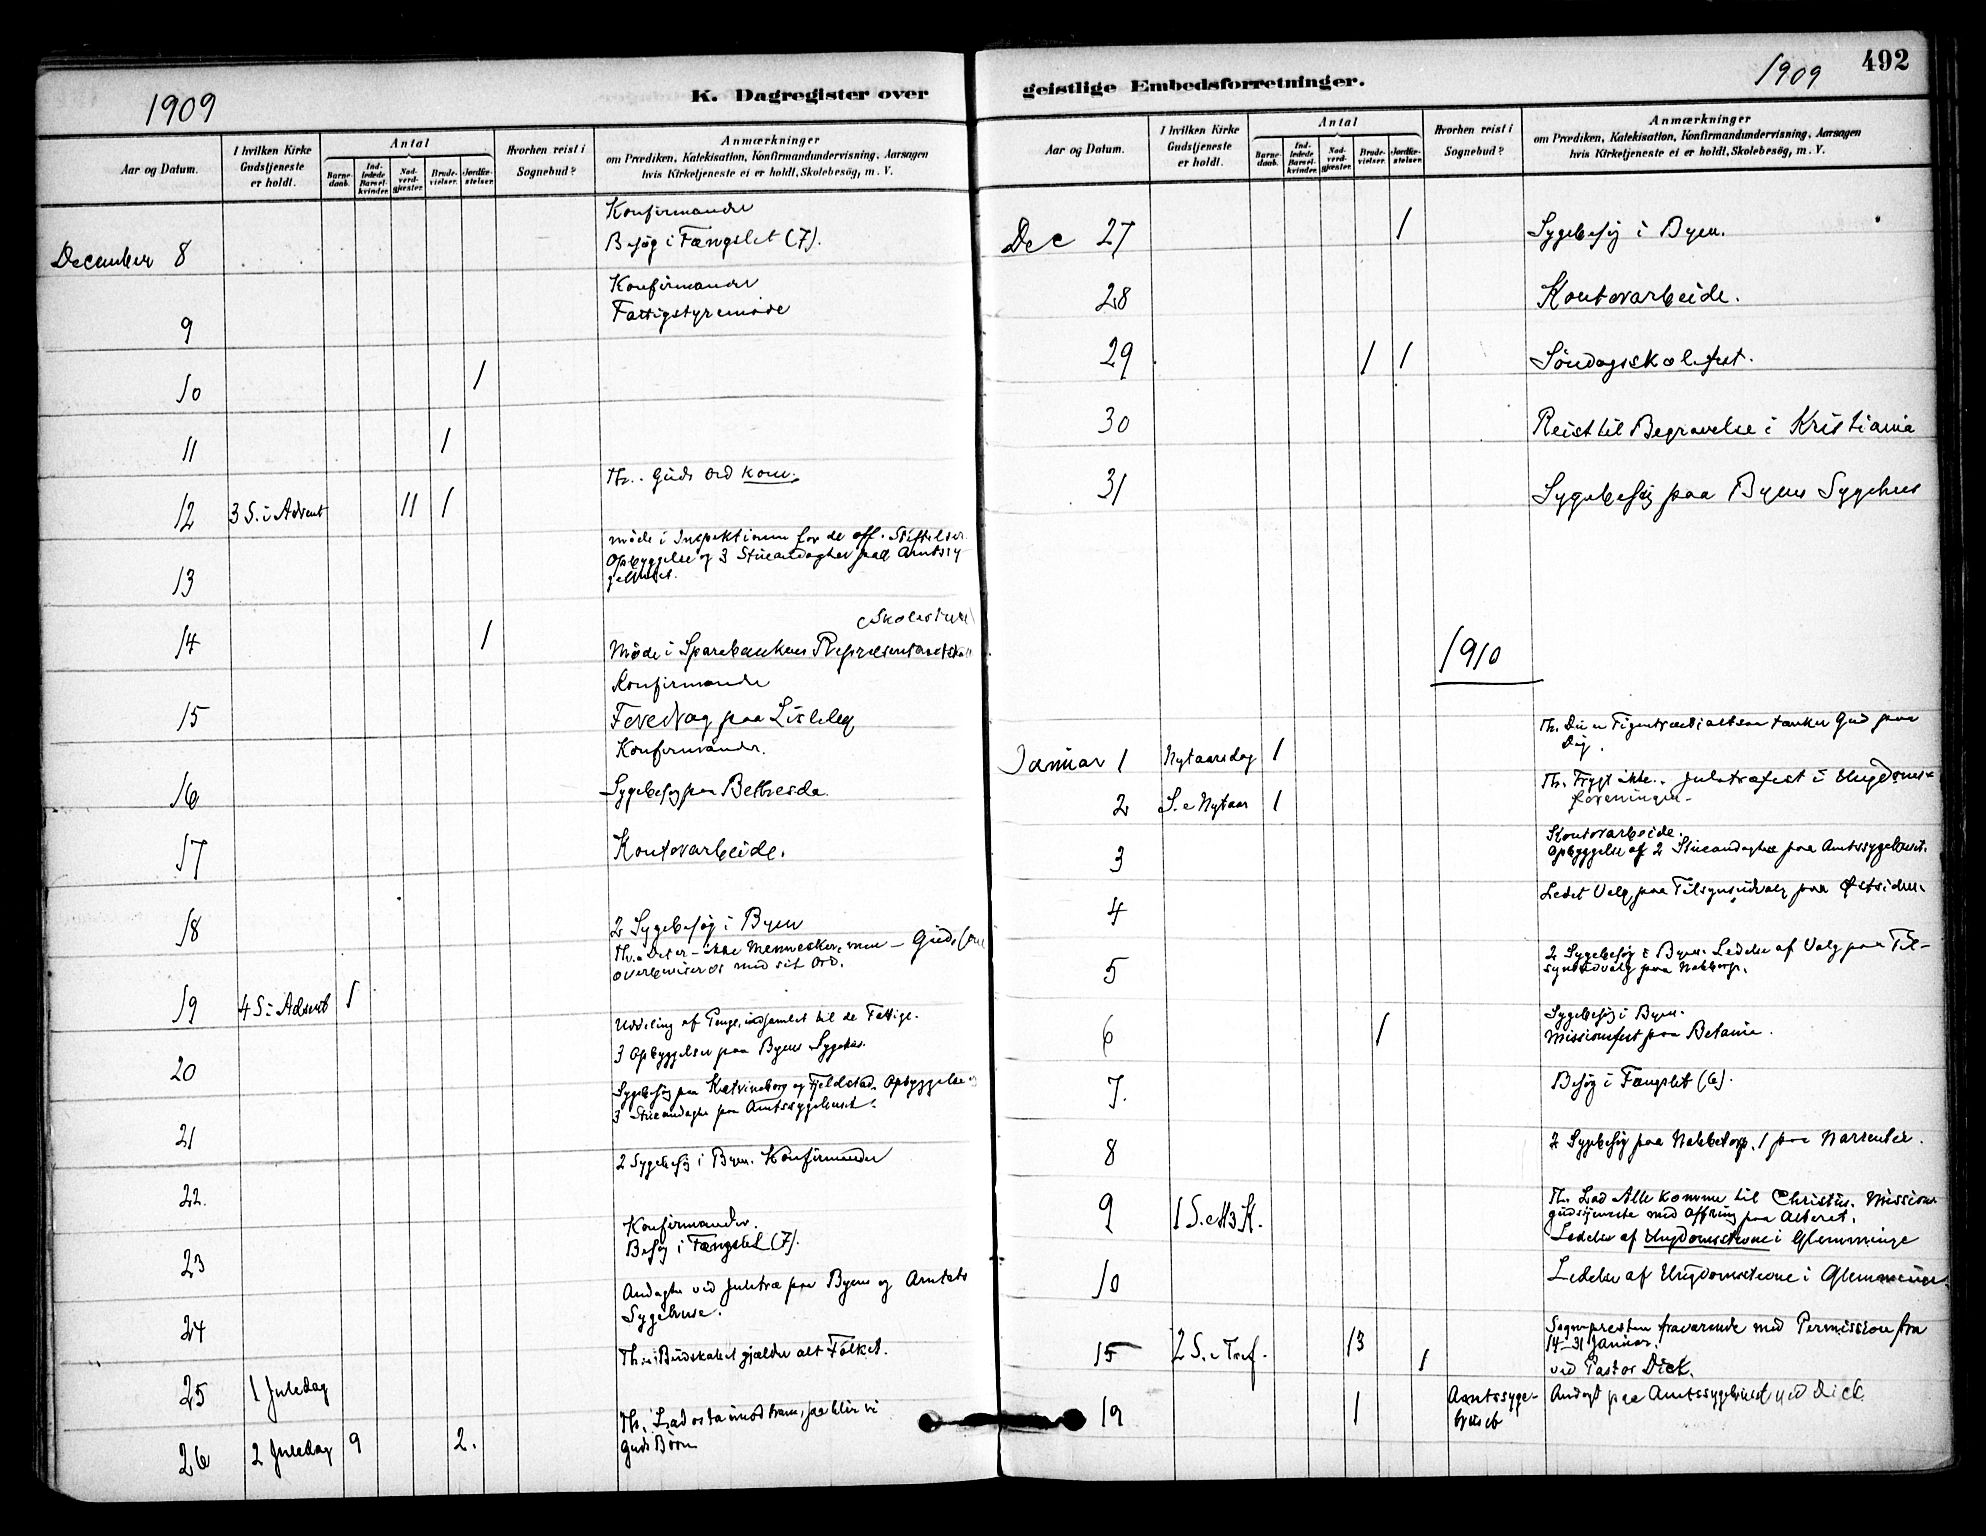 1909
K. Dagregister over
Aar og Datum.
I hvilken Kirke Gudstjeneste er holdt.
Antal
Barnedaab.
Indledede Barselkvinder
Nadverdgjæster
Brudevielser.
Jordfæstelser
Hvorhen reist i Sognebud?
Anmærkninger
om Prædiken, Katekisation, Konfirmandundervisning, Aarsagen
hvis Kirketjeneste ei er holdt, Skolebesög, m. V.
Konfirmander
December 8 Besög i Fængslet (7).
Konfirmander
9 Fattigstyremöde
10 1
11 1
12 3 S. i Advent 11 1 Th.. Guds Ord kom.
möde i Inspektionen for de off. Stiftelser.
Opbyggelse og 3 Stueandagter paa Amtssy
13 gehuset.
Skolestyre
14 1 Möde i Sparebankens Repræsentantskab
Konfirmander
15 Foredrag paa Lisleby
Konfirmander.
16 Sygebesög paa Bethesda.
17 Kontorarbeide.
18 2 Sygebesög i Byen
Th.. Det er - ikke Mennesker, men - Gud,
overbeviser os med sit Ord.
19 4 S i Advent 1
Uddeling af Penge, indsamlet til de Fattige.
20 3 Opbyggelser paa Byens Sygehus.
Sygebesög paa Katrineborg og Fjeldstad. Opbyggelse og
21 3 Stueandagter paa Amtssygehuset.
22. 2 Sygebesög i Byen. Konfirmander
Konfirmander.
23 Besög i Fængslet (7).
Andagter ved Juletræ paa Byens og Amtets
24 Sygehuse.
25 1 Juledag Th.. Budskabet gjælder alt Folket.
Th.. Lad os ta imod ham, saa blir vi
26 2 Juledag 9 2. Guds Börn
geistlige Embedsforretninger.
1909
492
Aar og Datum.
I hvilken Kirke Gudstjeneste er holdt.
Antal
Barnedaab.
Indledede Barselkvinder
Nadverdgjæster
Brudevielser.
Jordfæstelser
Hvorhen reist i Sognebud?
Anmærkninger
om Prædiken, Katekisation, Konfirmandundervisning, Aarsagen
hvis Kirketjeneste ei er holdt, Skolebesög, m. V.
Dec 27 1 Sygebesög i Byen.
28 Kontorarbeide.
29 1 1 Söndagsskolefest.
30 Reist til Begravelse i Kristiania
31 Sygebesög paa Byens Sygehus
1910
Th. Du er Figentræet; altsaa tænker Gud paa
Januar 1 Nytaarsdag 1 Dig.
Th. Frygt ikke.. Juletræfest i Ungdoms-
2 S. e Nytaar 1 foreningen.
Kontorarbeide.
3 Opbyggelse af 2 Stueandagter paa Amtssygehuset.
4 Ledet Valg paa Tilsynsudvalg paa Østsiden.
2 Sygebesög i Byen. Ledelse af Valg paa Til-
5 synsudvalg paa Nabbetorp.
Sygebesög i Byen.
6 1 Missionsfest paa Betania.
7. Besög i Fængslet (6).
8 2 Sygebesög paa Nabbetorp, 1 paa Narrenter.
Th. Lad Alle komme til Christus. Missions
9 1 S. e H3K. gudstjeneste med Offring paa Alteret.
Ledelse af Ungdomsstevne i Glemminge
10 Ledelse af Ungdomsstevne i Glemminge.
Sognepresten fraværende med Permission fra
14-31 Januar.
15 2 S. e Tref. 13 1 ved Pastor Dick.
19 1 Amtssygehuset Andagt paa Amtssygehuset ved Dick